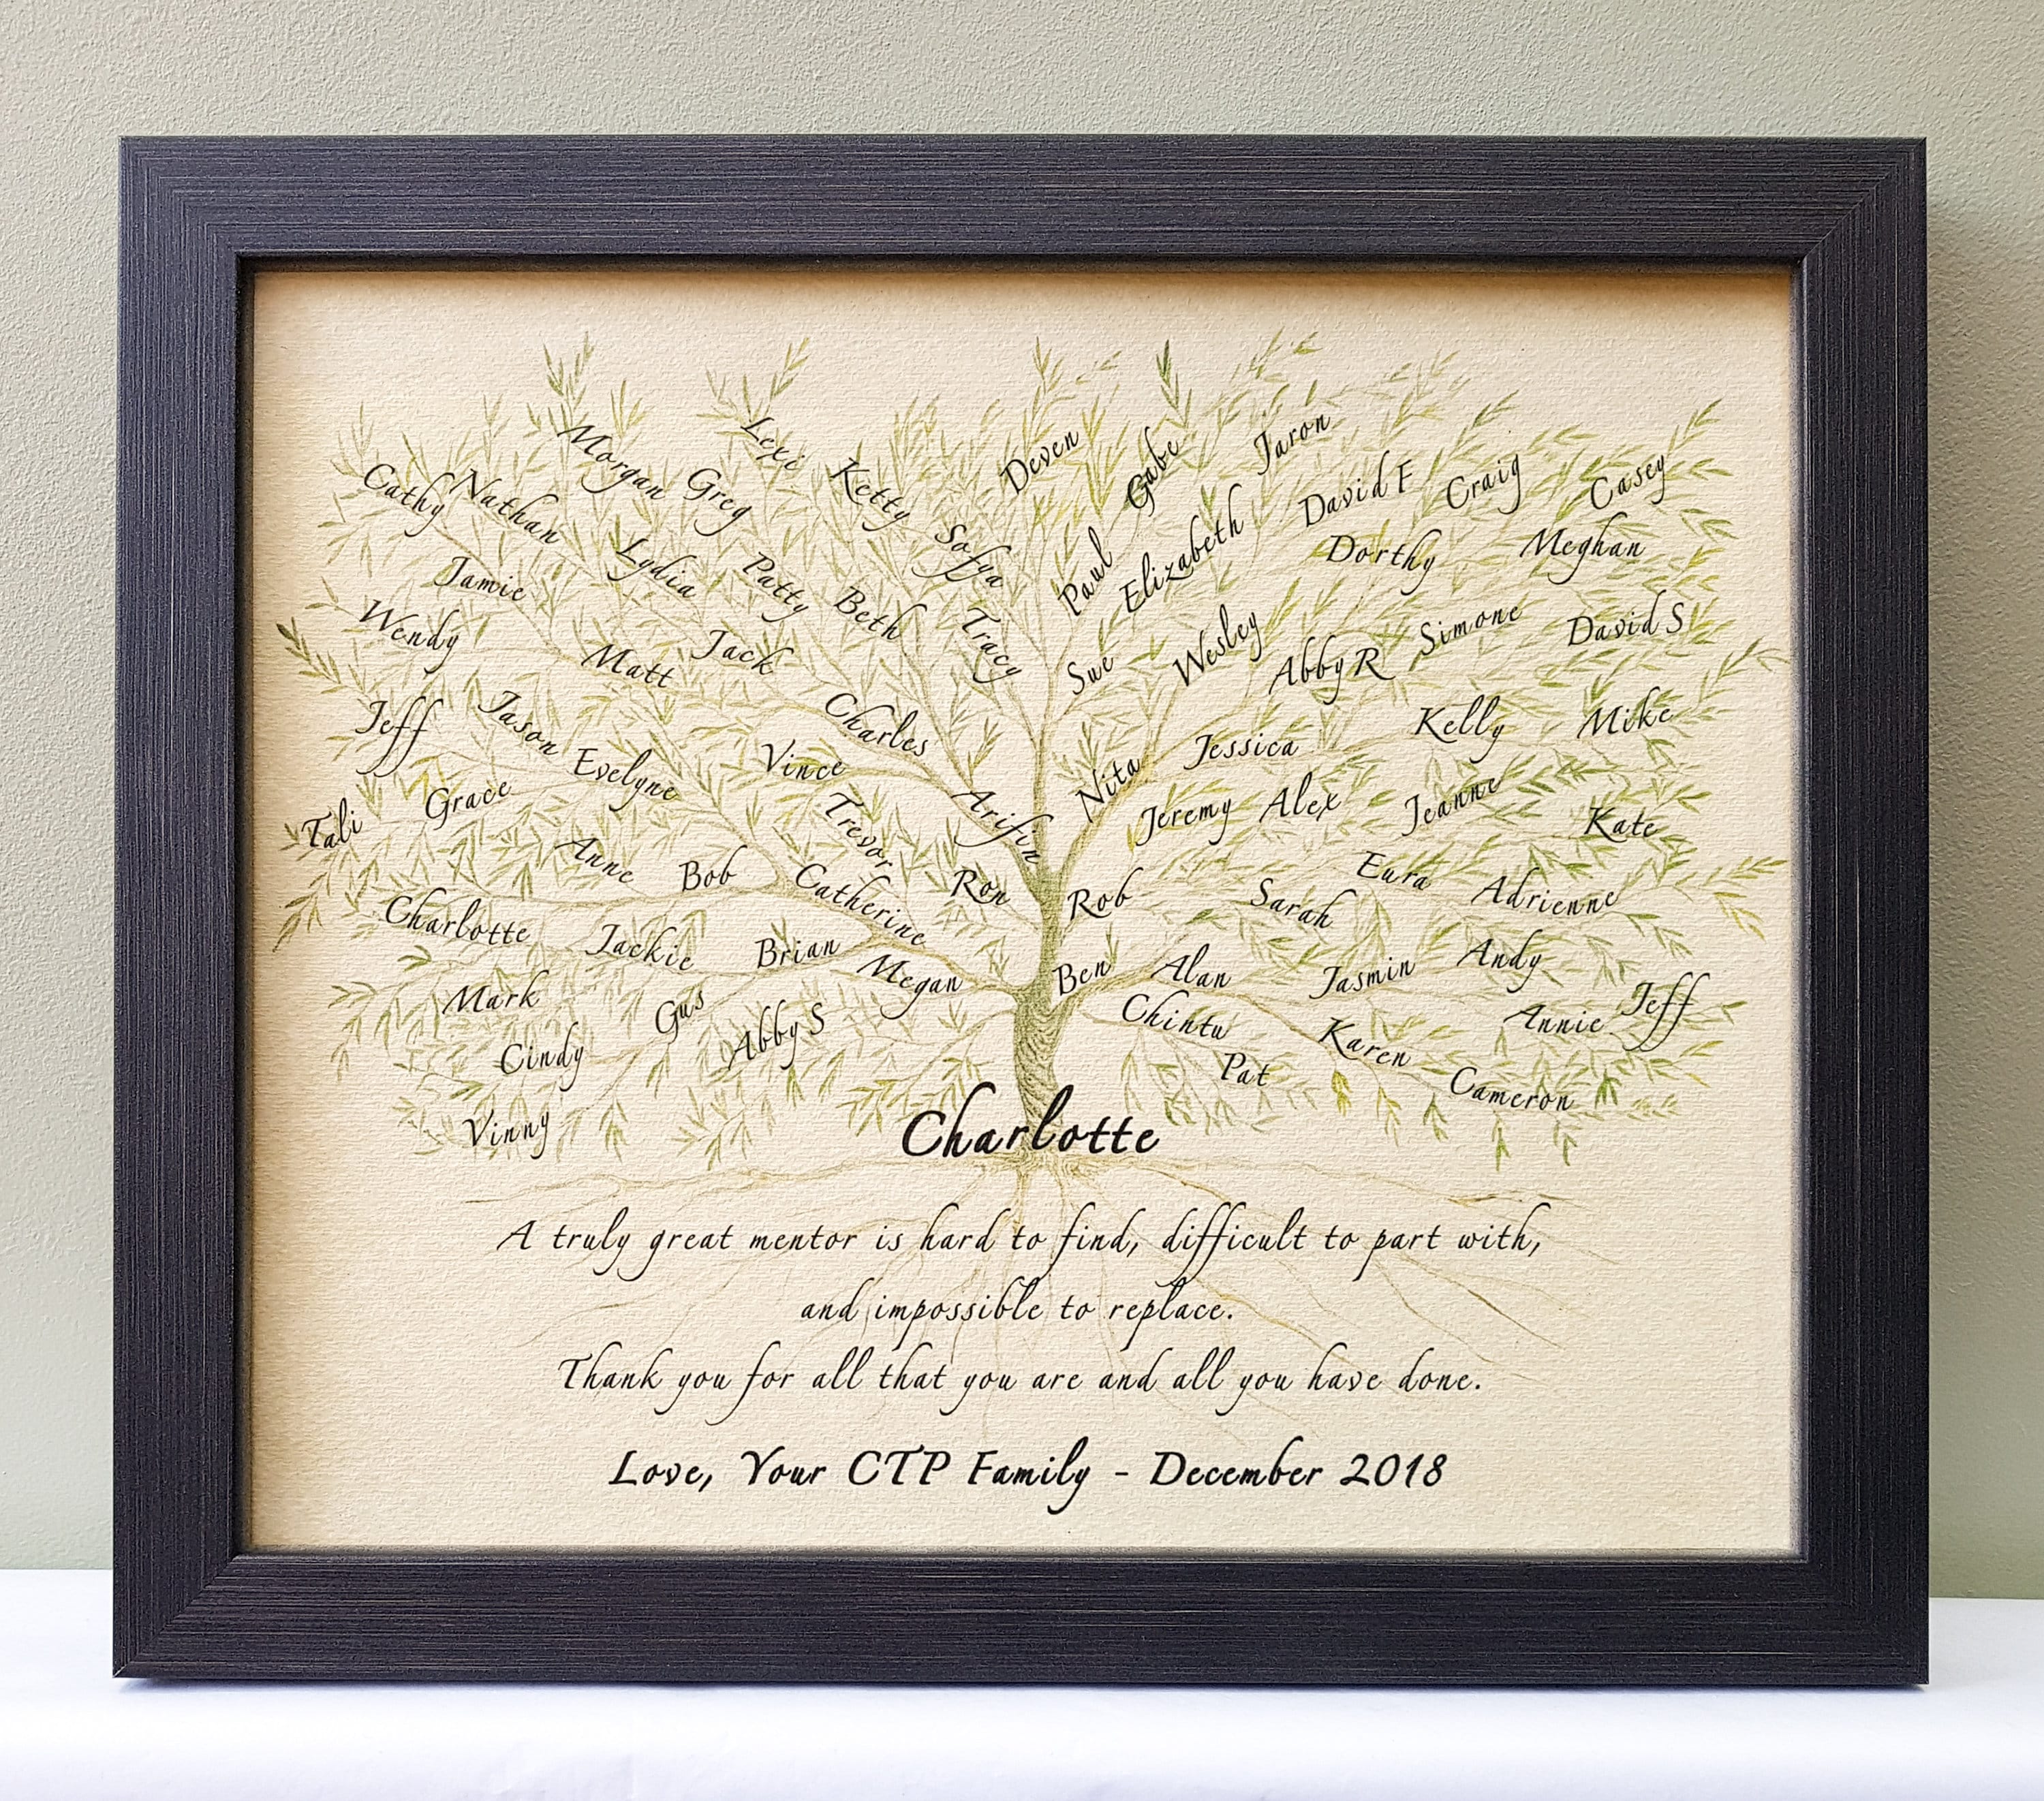 Lexi
Deven
Gabe
Jaron
Morgan
Cathy
Nathan
Greg
Ketty
Sofya
David F
Craig
Casey
Jamie
Lydia
Patty
Beth
Paul
Elizabeth
Dorthy
Meghan
Wendy
Matt
Jack
Tracy
Sue
Wesley
Abby R
Simone
David S
Jeff
Jason
Evelyne
Vince
Charles
Nita
Jessica
Kelly
Mike
Tali
Grace
Trevor
Arifin
Jeremy
Alex
Jeanne
Kate
Anne
Bob
Catherine
Ron
Rob
Sarah
Eura
Adrienne
Charlotte
Jackie
Brian
Megan
Ben
Alan
Jasmin
Andy
Mark
Gus
Abby S
Chintu
Karen
Annie
Jeff
Cindy
Pat
Cameron
Vinny
Charlotte
A truly great mentor is hard to find, difficult to part with,
and impossible to replace.
Thank you for all that you are and all you have done.
Love, Your CTP Family - December 2018